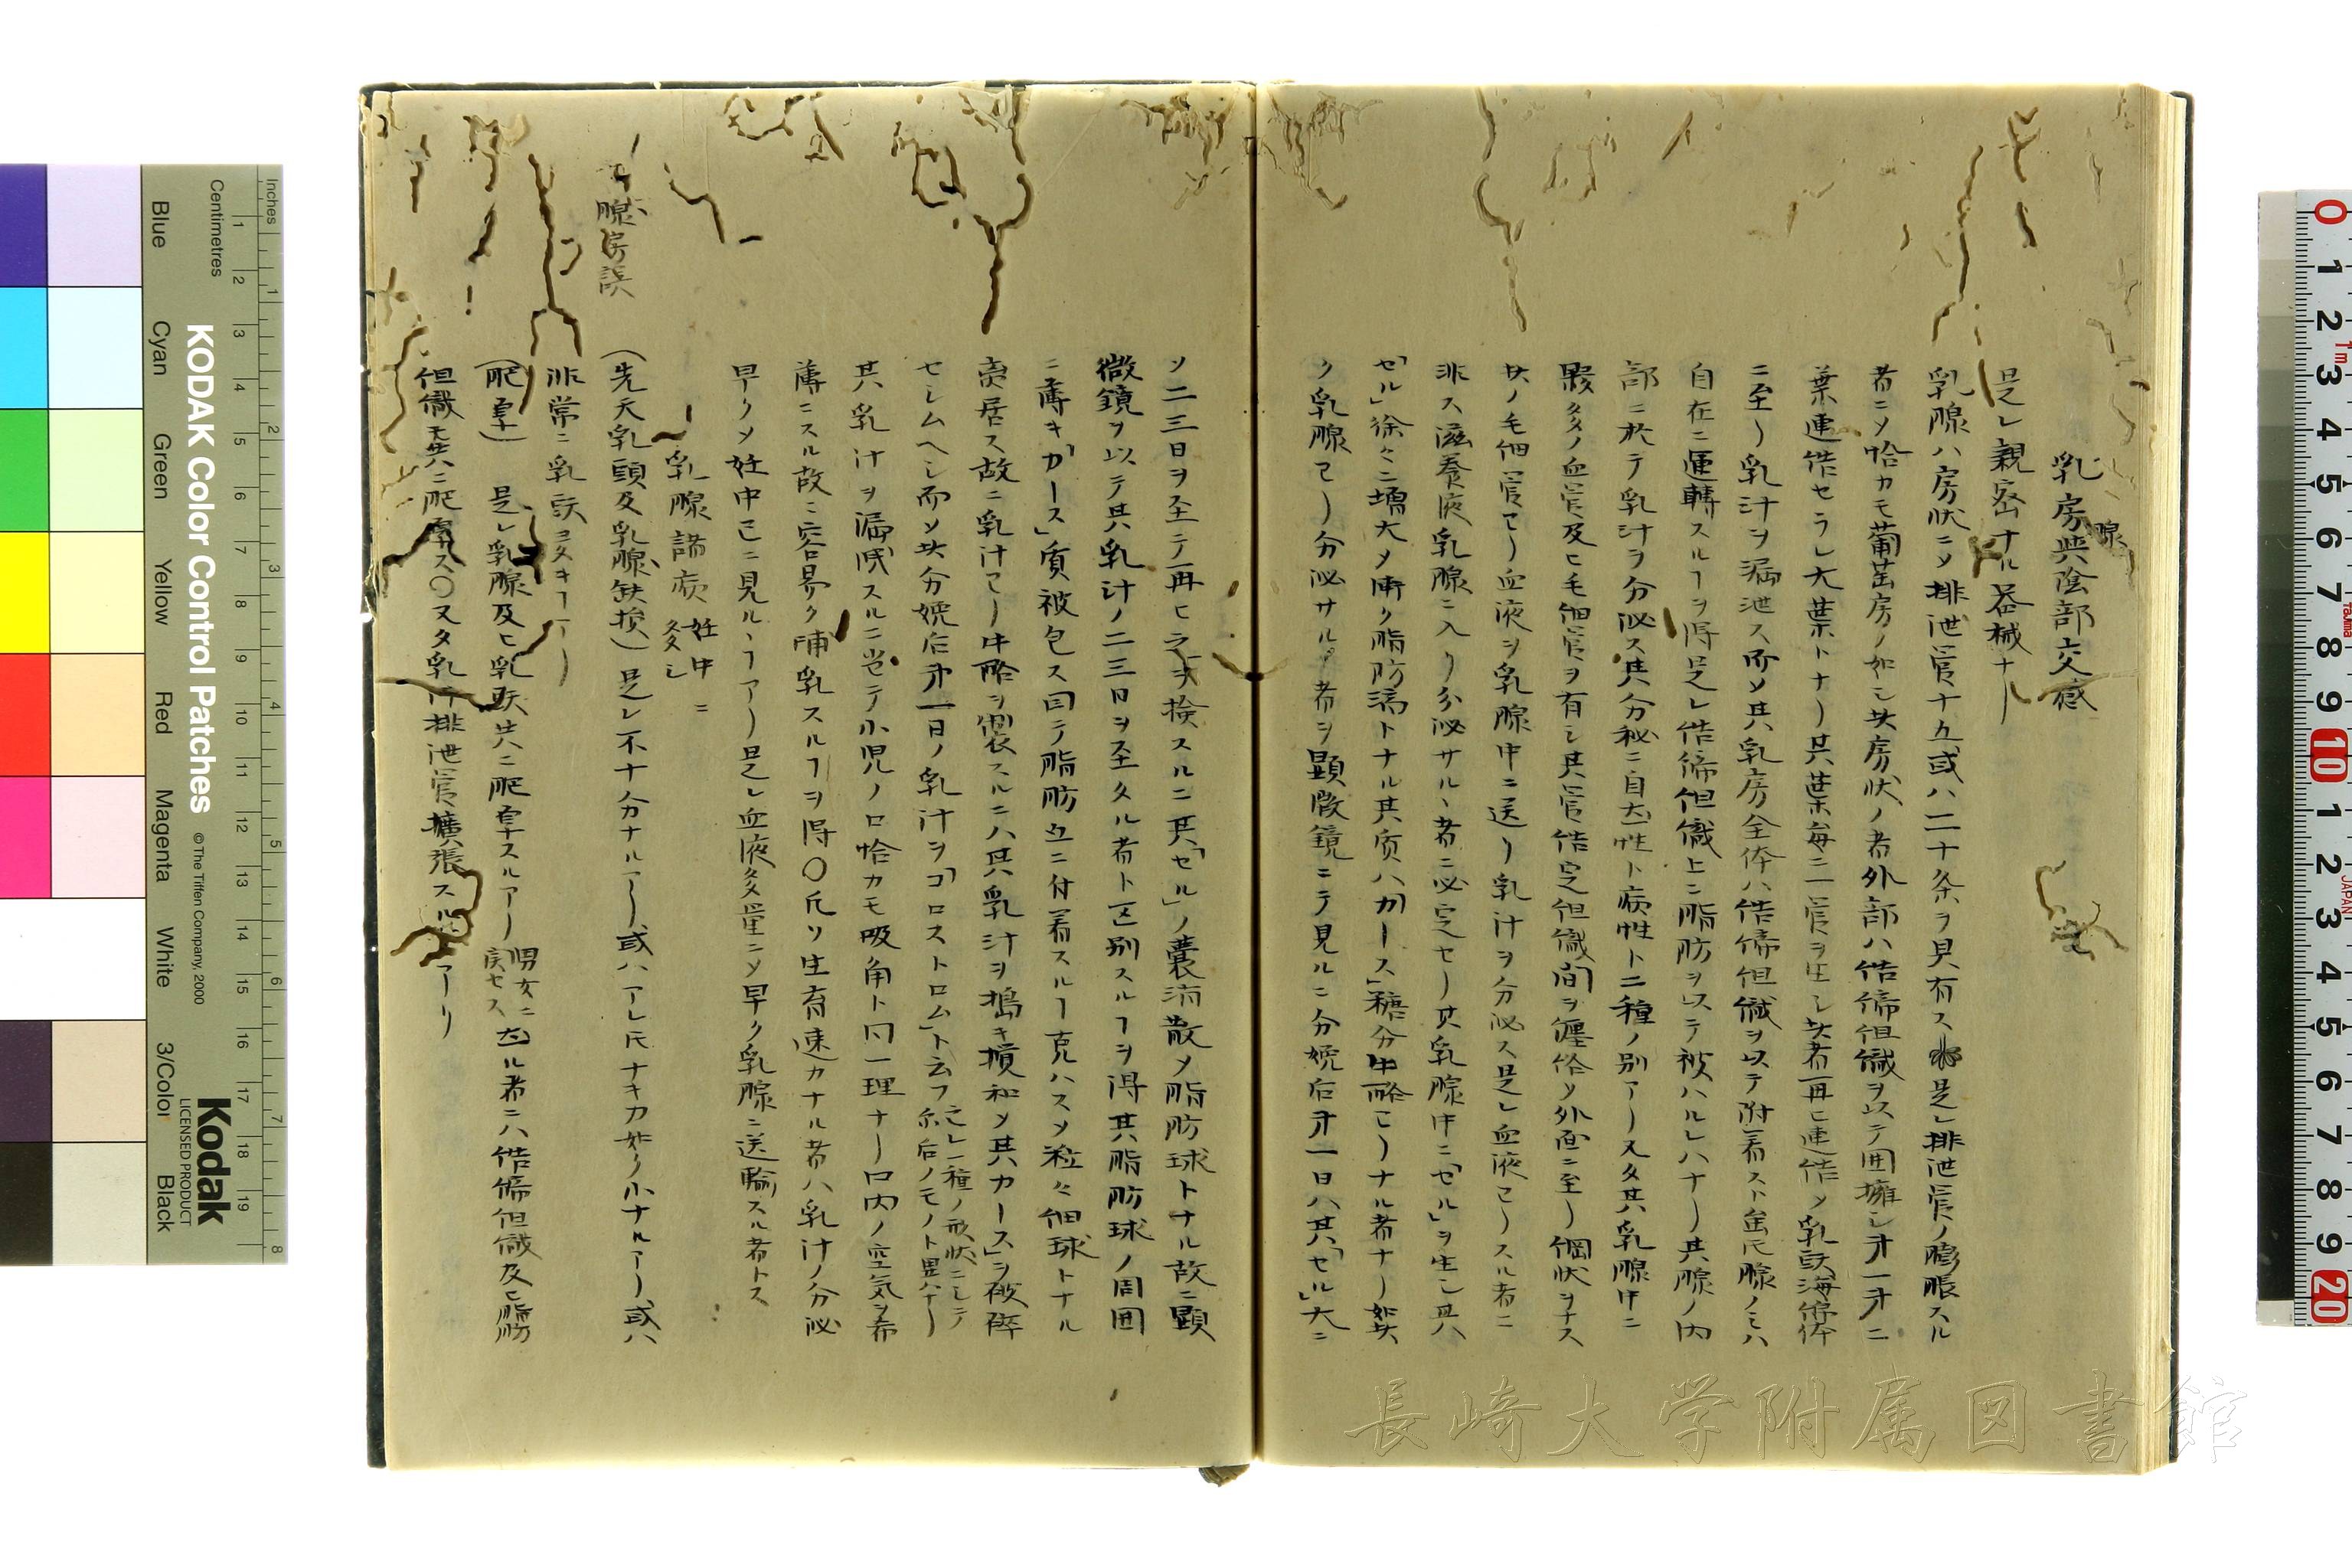 乳房與陰部交感
腺
是レ親密ナル器械ナリ
乳腺ハ房状ニメ排泄管十五或ハ二十条ヲ具有ス是レ排泄管ノ膨脹スル
者ニメ恰カモ葡萄房ノ如シ其房状ノ者外部ハ結締但織ヲ以テ囲擁シ才一才二
葉連結セラレ大葉トナリ其葉毎ニ一管ヲ生シ其者再ヒ連結メ乳頭海綿体
ニ至リ乳汁ヲ漏泄ス而メ其乳房全体ハ結締但織ヲ以テ附着スト虽𪜈腺ノミハ
自在ニ運轉スルヿヲ得是レ結締但織上ニ脂肪ヲ以テ被ハルレハナリ其腺ノ内
部ニ於テ乳汁ヲ分泌ス其分秘ニ自然性ト病性ト二種ノ別アリ又タ其乳腺中ニ
夥多ノ血管及ヒ毛細管ヲ有シ其管結定但織間ヲ纏絡メ外面ニ至リ網状ヲナス
其ノ毛細管ヨリ血液ヲ乳腺中ニ送リ乳汁ヲ分泌ス是レ血液ヨリスル者ニ
非ス滋養液乳腺ニ入リ分泌サルヽ者ニ必定セリ其乳腺中ニ「セル」ヲ生シ具ハ
「セル」徐々ニ増大メ漸ク脂肪滴トナル其质ハ「カース」糖分中略ヨリナル者ナリ如其
ク乳腺ヨリ分泌サルヽ者ヲ顕微鏡ニテ見ルニ分娩后才一日ハ其「セル」大ニ
メ二三日ヲ至テ再ヒ之ヲ検スルニ其「セル」ノ嚢消散メ脂肪球トナル故ニ顕
微鏡ヲ以テ其乳汁ノ二三日ヲ至タル者ト区別スルヿヲ得其脂肪球ノ周囲
ニ薄キ「カース」质被包ス因テ脂肪互ニ付着スルヿ克ハスメ粒々細球トナル
売居ス故ニ乳汁ヨリ牛酪ヲ製スルニハ其乳汁ヲ搗キ損和メ其カース」ヲ破碎
セシムヘシ而メ其分娩后才一日ノ乳汁ヲ「コロストロム」ト云フ之レ一種ノ形状ニシテ
尓后ノモノト異ナリ
其乳汁ヲ漏泄スルニ当テ小児ノ口恰カモ吸角ト同一理ナリ口内ノ空気ヲ希
薄ニスル故ニ容易ク哺乳スルヿヲ得〇凡ソ生育速カナル者ハ乳汁ノ分泌
早クメ妊中已ニ見ルヽヿアリ是レ血液多量ニメ早ク乳腺ニ送輸スル者トス
乳腺諸病 妊中ニ
多シ
腺房誤
(先天乳頭及乳腺缺損)是レ不十分ナルアリ或ハアレ𪜈ナキカ如ク小ナルアリ或ハ
非常ニ乳頭多キヿアリ
(肥厚) 是レ乳腺及ヒ乳頭共ニ肥厚スルアリ 男女ニ
関セス 然ル者ニハ結締但織及ヒ脂肪
但織共ニ肥厚ス〇又タ乳汁排泄管擴張スルヿアリ
長崎大学附属図書館
Inches
Centimetres
KODAK Color Control Patches
© The Tiffen Company, 2000
Kodak
LICENSED PRODUCT
Blue
Cyan
Green
Yellow
Red
Magenta
White
3/Color
Black
JAPAN